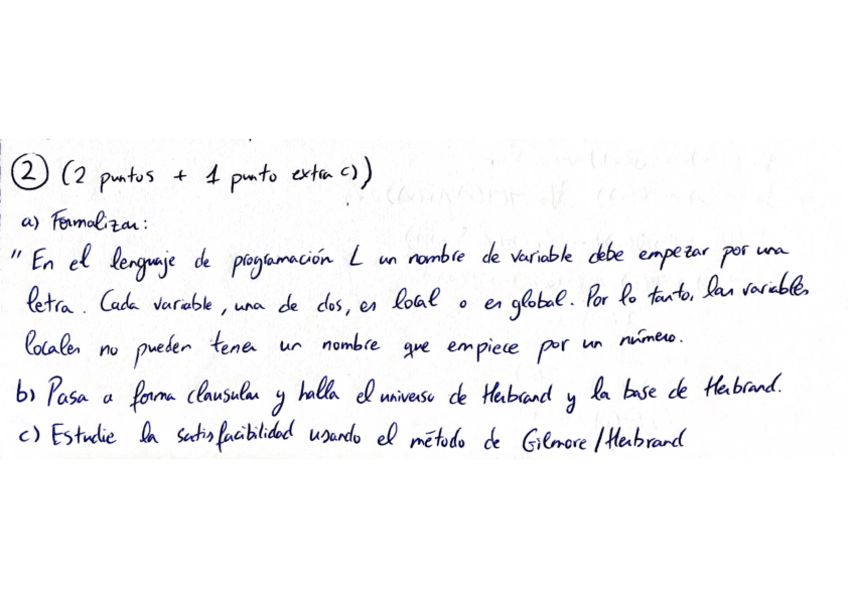 ② (2 puntos + 1 punto extra c))
a) Formalizar:
"En el lenguaje de programación L un nombre de variable debe empezar por una
letra. Cada variable, una de dos, es local o es global. Por lo tanto, las variables
locales no pueden tener un nombre que empiece por un número.
b) Pasa a forma clausular y halla el universo de Herbrand y la base de Herbrand.
c) Estudie la satisfacibilidad usando el método de Gilmore/Herbrand